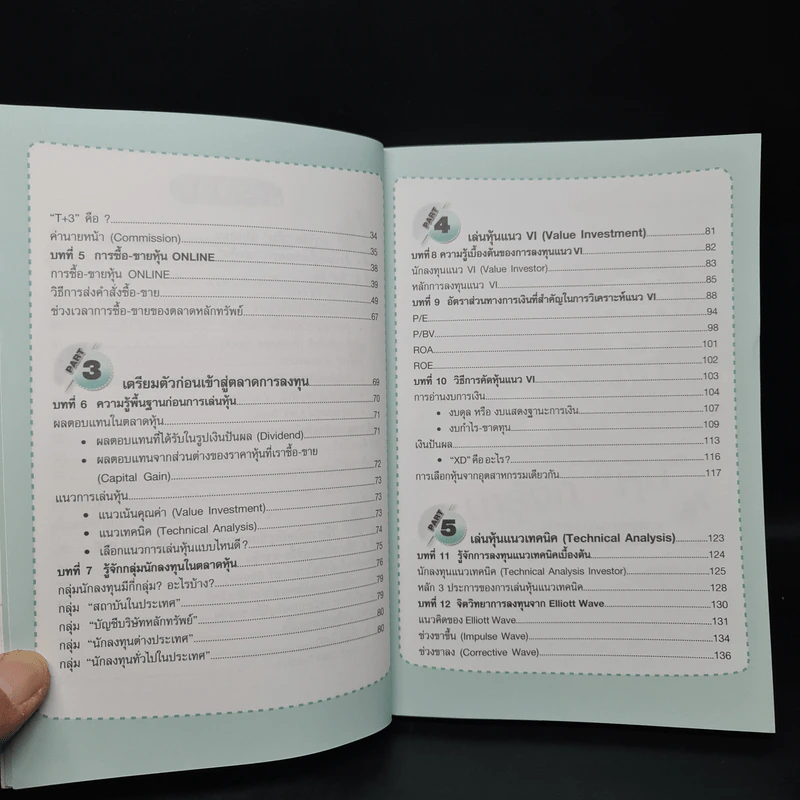 "T+3" คือ ?.......34
ค่านายหน้า (Commission).......35
บทที่ 5 การซื้อ-ขายหุ้น ONLINE.......38
การซื้อ-ขายหุ้น ONLINE.......39
วิธีการส่งคำสั่งซื้อ-ขาย.......49
ช่วงเวลาการซื้อ-ขายของตลาดหลักทรัพย์.......67
PART 3 เตรียมตัวก่อนเข้าสู่ตลาดการลงทุน.......69
บทที่ 6 ความรู้พื้นฐานก่อนการเล่นหุ้น.......70
ผลตอบแทนในตลาดหุ้น.......71
• ผลตอบแทนที่ได้รับในรูปเงินปันผล (Dividend).......71
• ผลตอบแทนจากส่วนต่างของราคาหุ้นที่เราซื้อ-ขาย
(Capital Gain).......72
แนวการเล่นหุ้น.......73
• แนวเน้นคุณค่า (Value Investment).......73
• แนวเทคนิค (Technical Analysis).......74
• เลือกแนวการเล่นหุ้นแบบไหนดี?.......75
บทที่ 7 รู้จักกลุ่มนักลงทุนในตลาดหุ้น.......76
กลุ่มนักลงทุนมีกี่กลุ่ม? อะไรบ้าง?.......79
กลุ่ม "สถาบันในประเทศ".......79
กลุ่ม "บัญชีบริษัทหลักทรัพย์".......80
กลุ่ม "นักลงทุนต่างประเทศ".......80
กลุ่ม "นักลงทุนทั่วไปในประเทศ"
PART 4 เล่นหุ้นแนว VI (Value Investment).......81
บทที่ 8 ความรู้เบื้องต้นของการลงทุนแนว VI.......82
นักลงทุนแนว VI (Value Investor).......83
หลักการลงทุนแนว VI.......85
บทที่ 9 อัตราส่วนทางการเงินที่สำคัญในการวิเคราะห์แนว VI.......88
P/E.......94
P/BV.......98
ROA.......101
ROE.......102
บทที่ 10 วิธีการคัดหุ้นแนว VI.......103
การอ่านงบการเงิน.......104
• งบดุล หรือ งบแสดงฐานะการเงิน.......107
• งบกำไร-ขาดทุน.......109
เงินปันผล.......113
• "XD" คืออะไร?.......116
การเลือกหุ้นจากอุตสาหกรรมเดียวกัน.......117
PART 5 เล่นหุ้นแนวเทคนิค (Technical Analysis).......123
บทที่ 11 รู้จักการลงทุนแนวเทคนิคเบื้องต้น.......124
นักลงทุนแนวเทคนิค (Technical Analysis Investor).......125
หลัก 3 ประการของการเล่นหุ้นแนวเทคนิค.......128
บทที่ 12 จิตวิทยาการลงทุนจาก Elliott Wave.......130
แนวคิดของ Elliott Wave.......131
ช่วงขาขึ้น (Impulse Wave).......134
ช่วงขาลง (Corrective Wave).......136